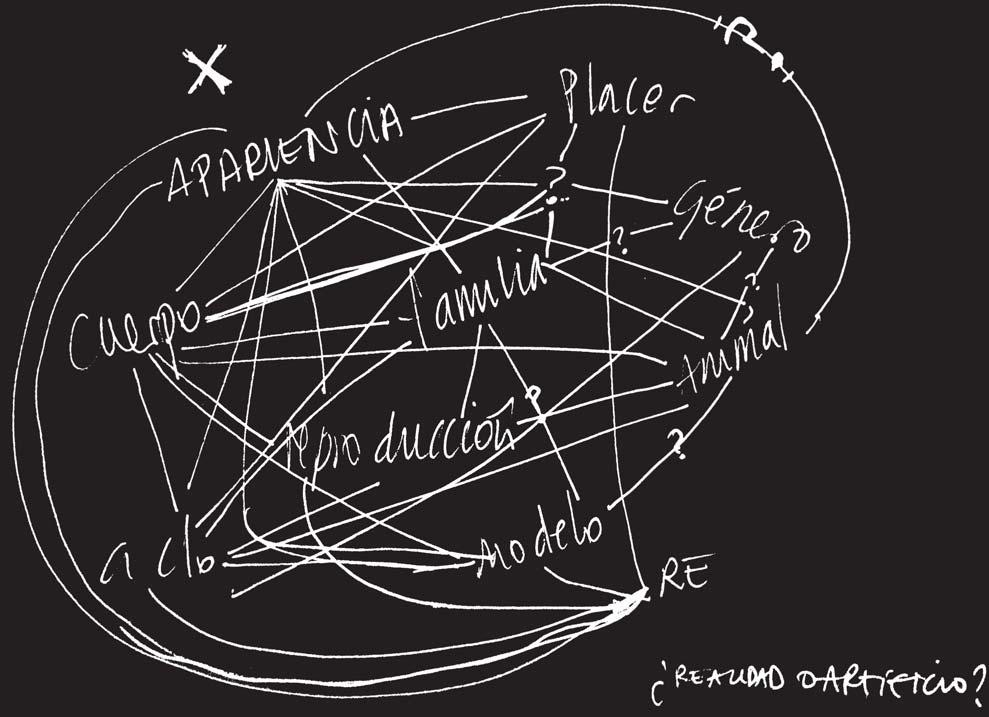 X
R.
Placer
APARIENCIA
?
Género
?
Familia
?
Cuerpo
Animal
?
reproducción
?
Modelo
RE
¿REALIDAD O ARTIFICIO?